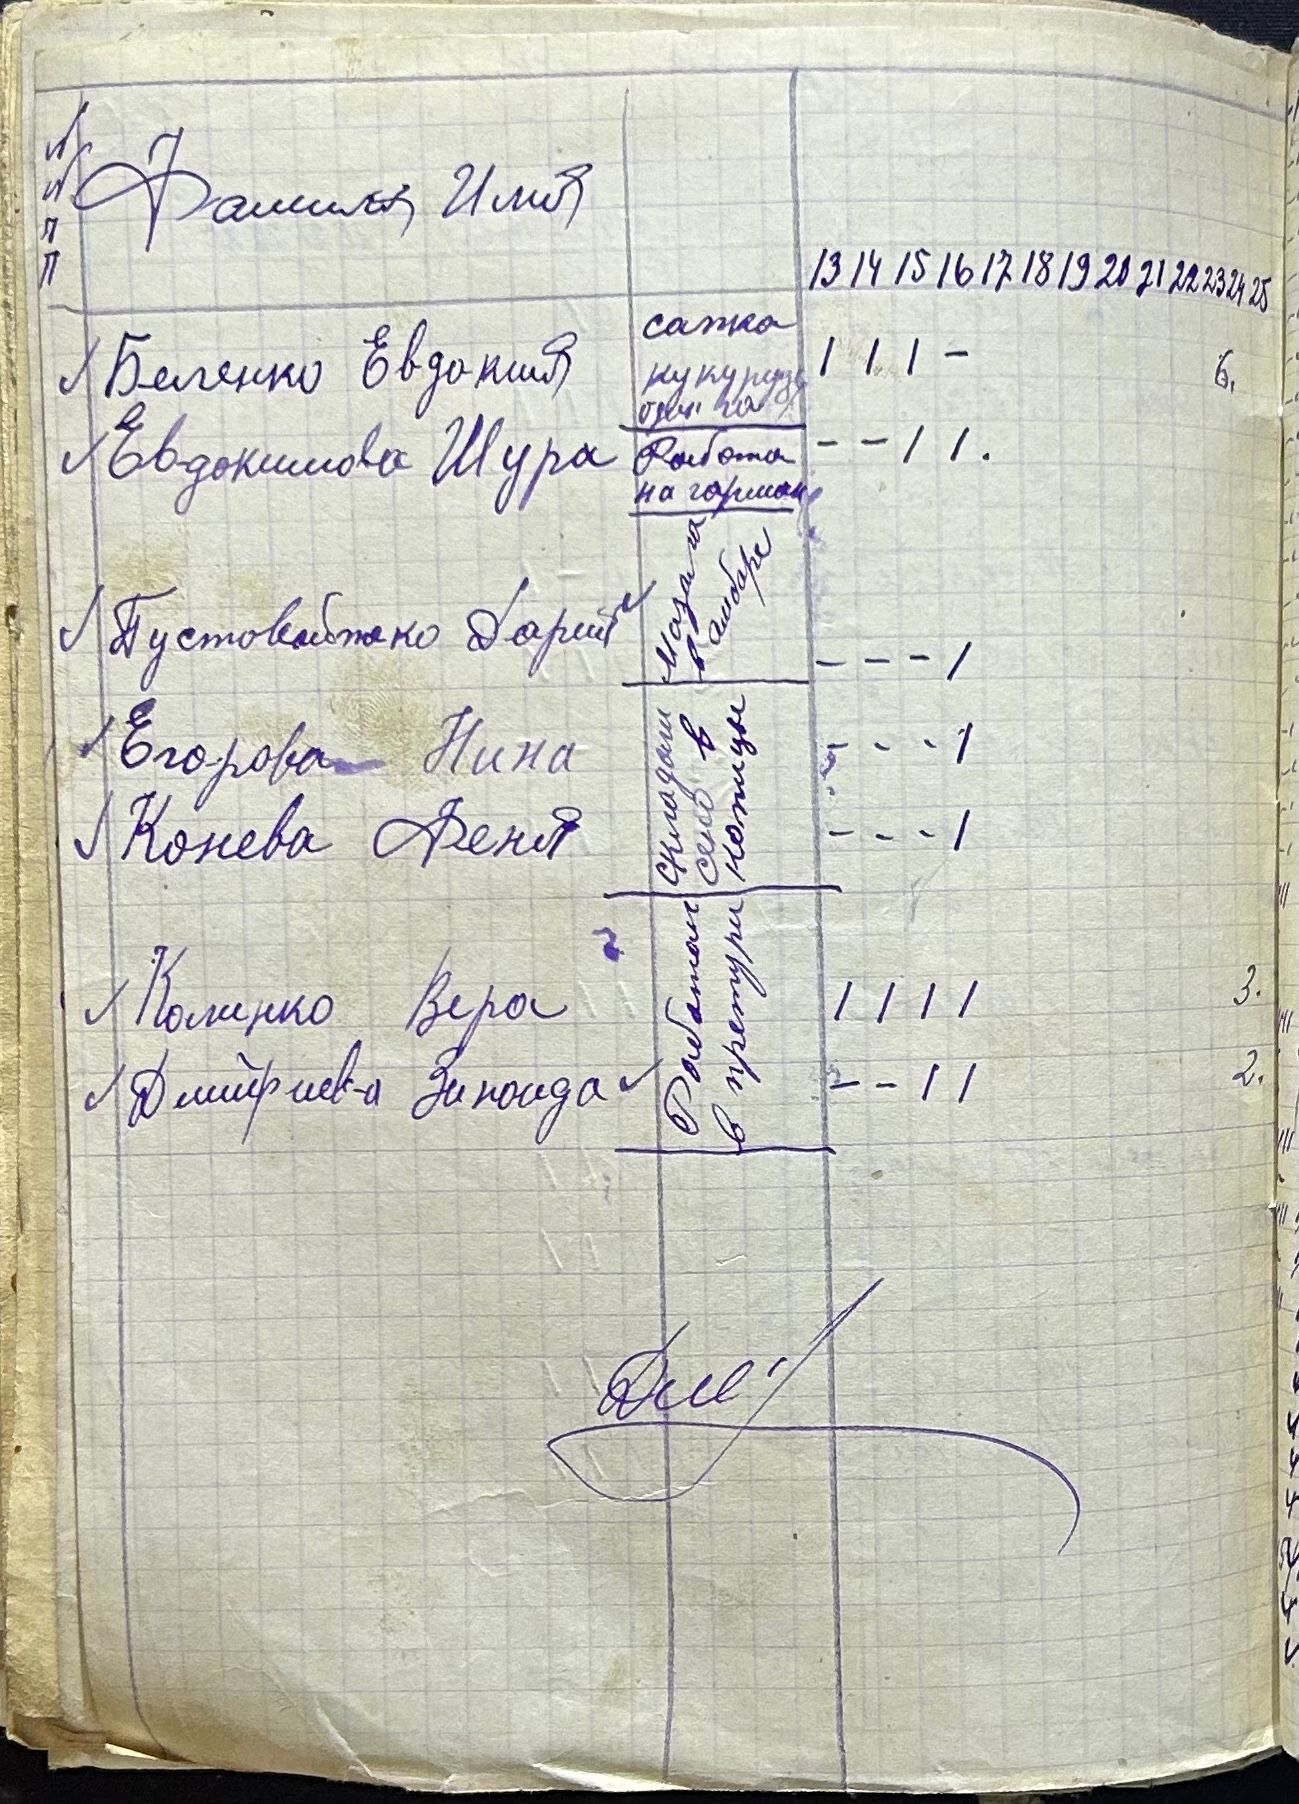 Фамилия Имя
13 14 15 16 17 18 19 20 21 22 23 24 25
✓ Беленко Евдокия сажка | | | - 6.
кукурузы
✓ Евдокимова Шура Работа - - | | .
на гарман
✓ Пустовойтенко Дария ✓ Мазала - - - |
в амбаре
✓ Егорова Нина Складали - - - |
сено в
копицы
✓ Конева Феня - - - |
✓ Колинко Вера Работали | | | | 3.
в
✓ Дмитриев-а Зинаида ✓ - - | | 2.